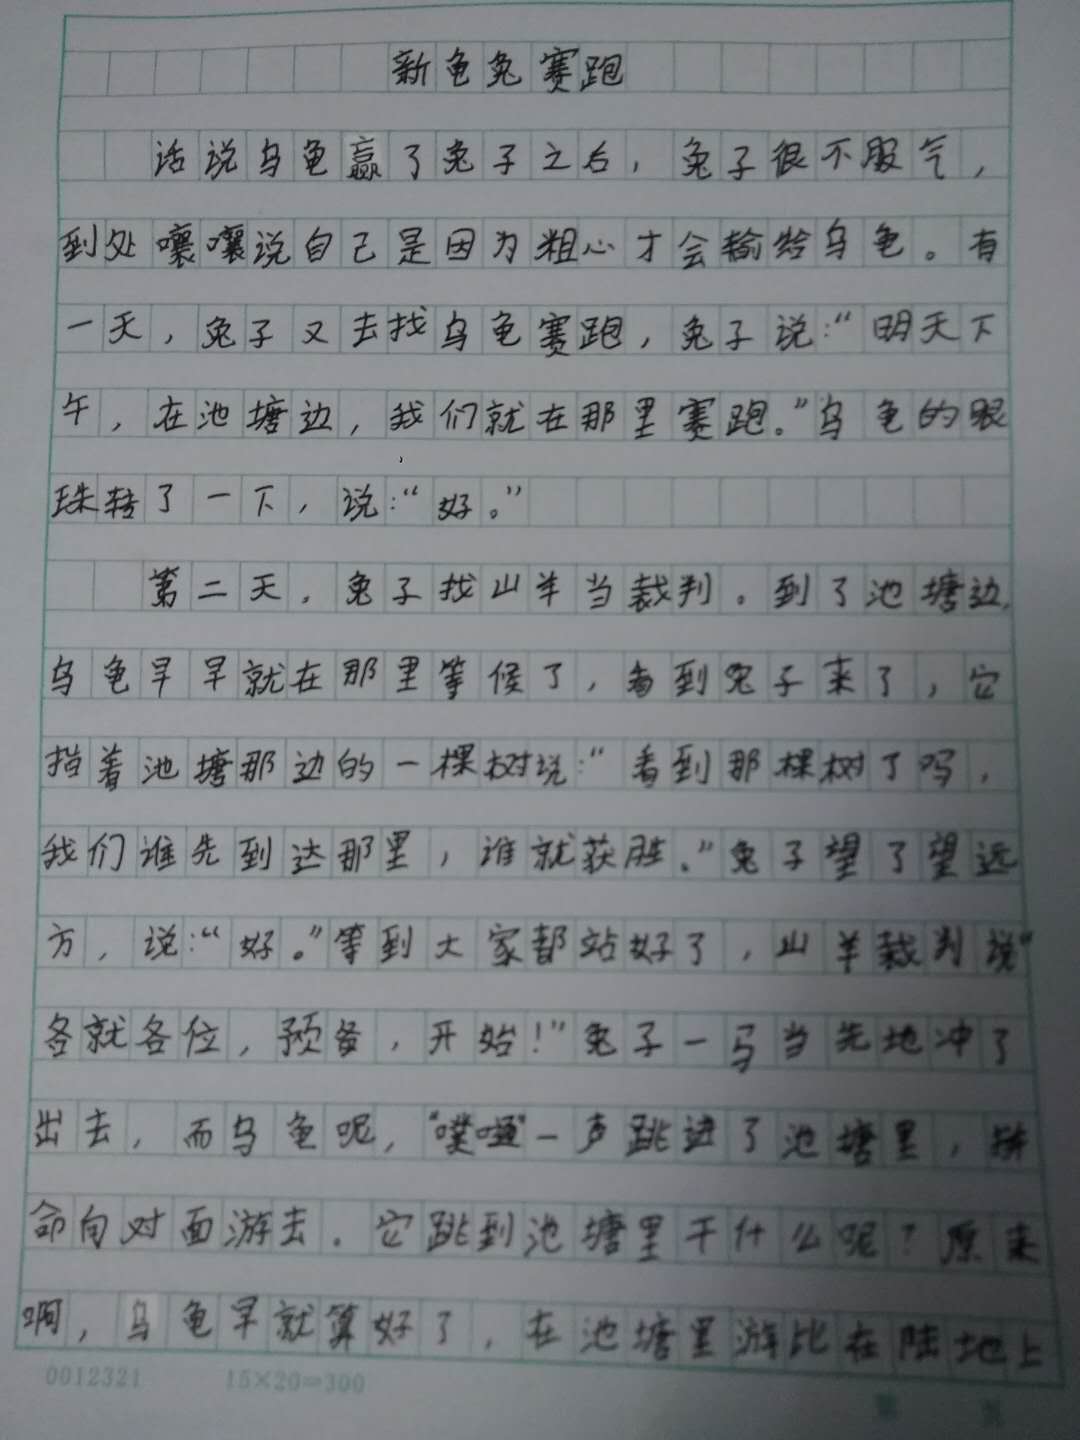 新龟兔赛跑
话说乌龟赢了兔子之后，兔子很不服气，
到处嚷嚷说自己是因为粗心才会输给乌龟。有
一天，兔子又去找乌龟赛跑，兔子说：“明天下
午，在池塘边，我们就在那里赛跑。”乌龟的眼
珠转了一下，说：“好。”
第二天，兔子找山羊当裁判。到了池塘边，
乌龟早早就在那里等候了，看到兔子来了，它
指着池塘那边的一棵树说：“看到那棵树了吗，
我们谁先到达那里，谁就获胜。”兔子望了望远
方，说：“好。”等到大家都站好了，山羊裁判说“
各就各位，预备，开始！”兔子一马当先地冲了
出去，而乌龟呢，“噗嗵”一声跳进了池塘里，拼
命向对面游去。它跳到池塘里干什么呢？原来
啊，乌龟早就算好了，在池塘里游比在陆地上
0012321 15×20=300
第 页